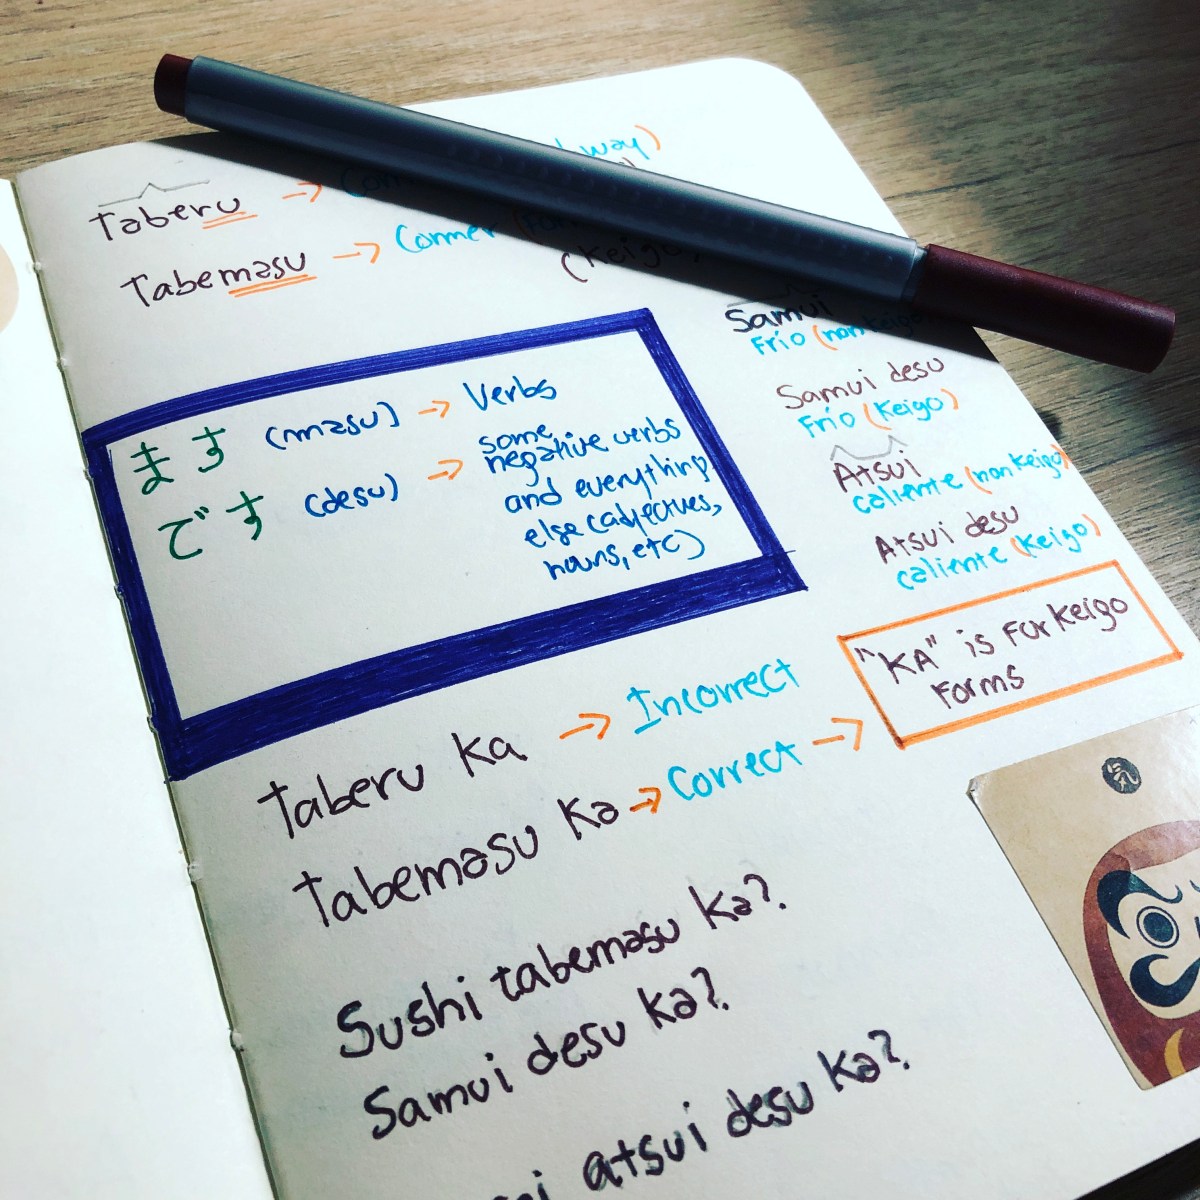 taberu → way)
tabemasu → Comer
(Keigo
ます (masu) → Verbs
です (desu) → some
negative verbs
and everything
else (adjectives,
nouns, etc)
Samui
Frío (non Keigo
Samui desu
Frío (Keigo)
Atsui
caliente (non Keigo)
Atsui desu
caliente (Keigo)
"KA" is For Keigo
Forms
taberu Ka → Incorrect
tabemasu Ka → Correct →
Sushi tabemasu Ka?
Samui desu Ka?
atsui desu Ka?
気